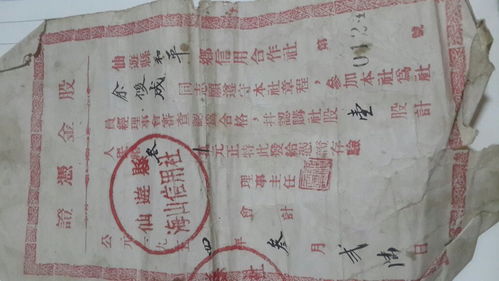 股金憑證
仙遊縣和平鄉信用合作社 第 號
余俊成同志願遵守本社章程，參加本社為社
員經理事會審查認為合格，并認購社股壹股計
人民 元正特此發給憑證存驗
理事主任
會計
公元一九 四年叁月貳 日
仙遊縣
海山信用社